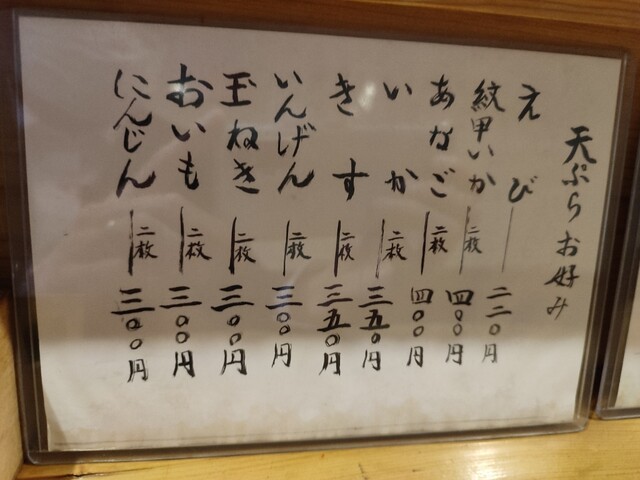 天ぷらお好み
えび 二二〇円
紋甲いか 二枚 四〇〇円
あなご 二枚 四〇〇円
いか 二枚 三五〇円
きす 二枚 三五〇円
いんげん 二枚 三〇〇円
玉ねぎ 二枚 三〇〇円
おいも 二枚 三〇〇円
にんじん 二枚 三〇〇円